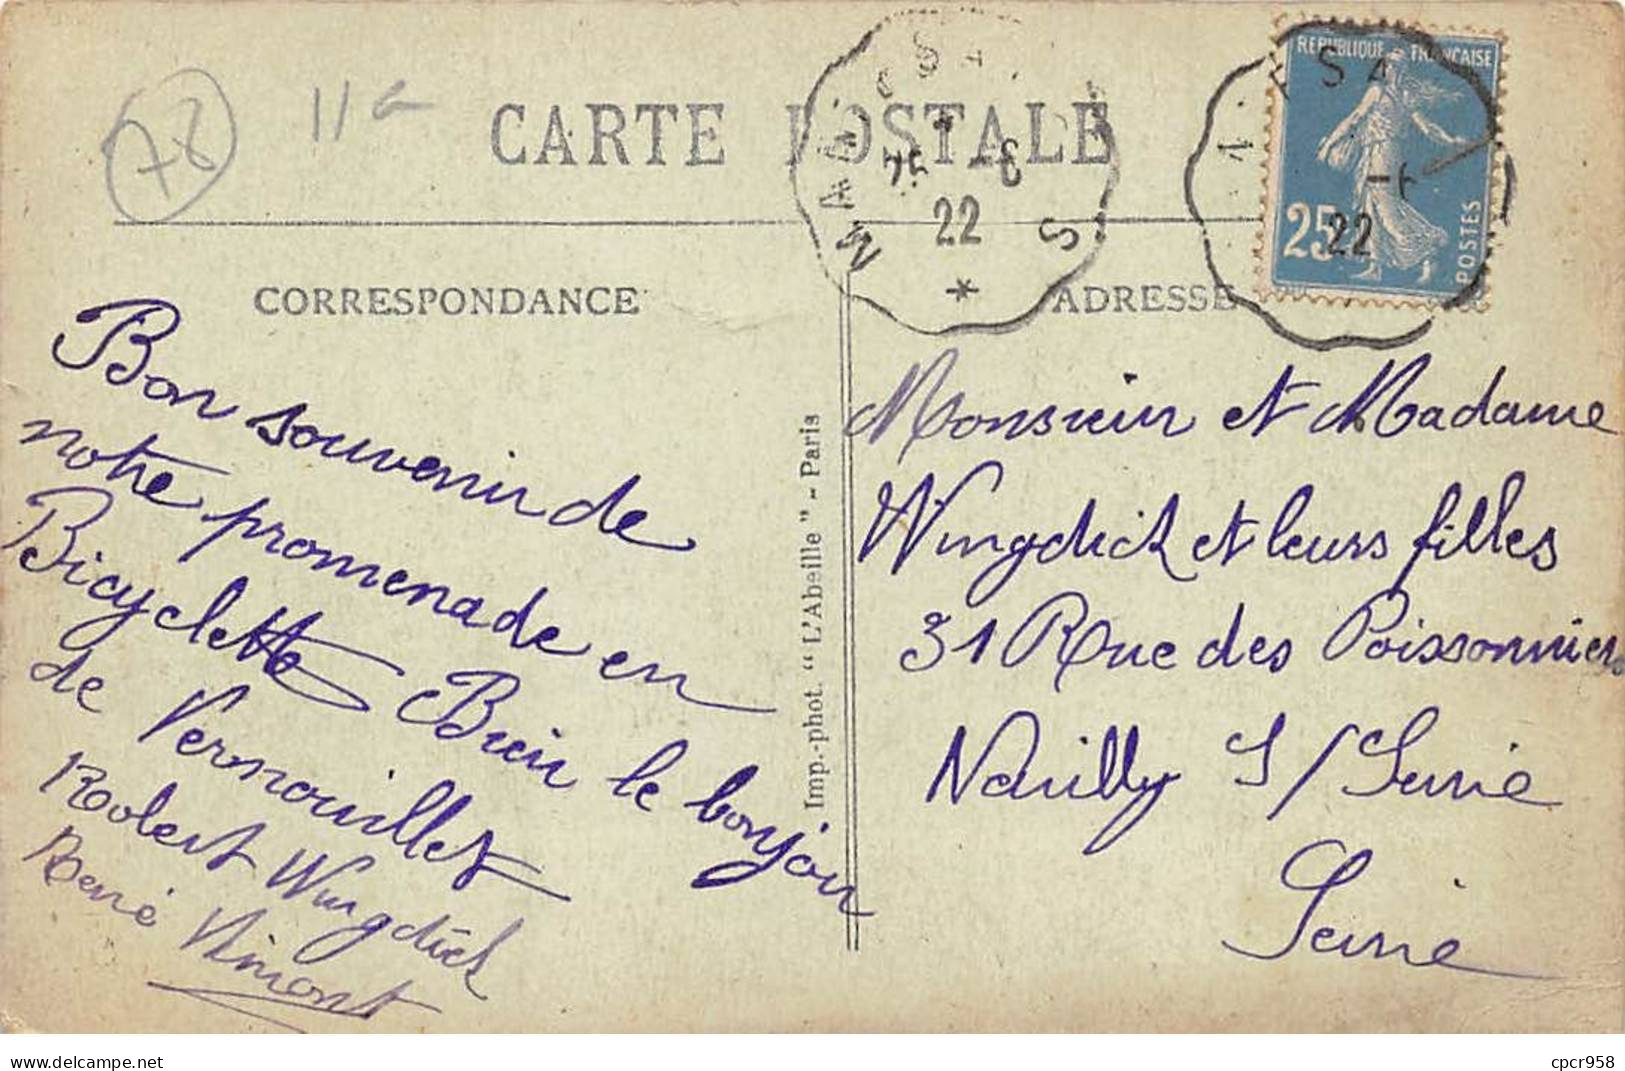 78
CARTE POSTALE
25
22
*
S
REPUBLIQUE FRANÇAISE
25
POSTES
22
CORRESPONDANCE
ADRESSE
Bon souvenir de
notre promenade en
Bicyclette Bien le bonjour
de Vernouillet
Robert Wingdick
René Vimont
Imp.-phot. "L'Abeille" - Paris
Monsieur et Madame
Wingdick et leurs filles
31 Rue des Poissonniers
Neuilly S/Seine
Seine
delcampe.net
cpcr958